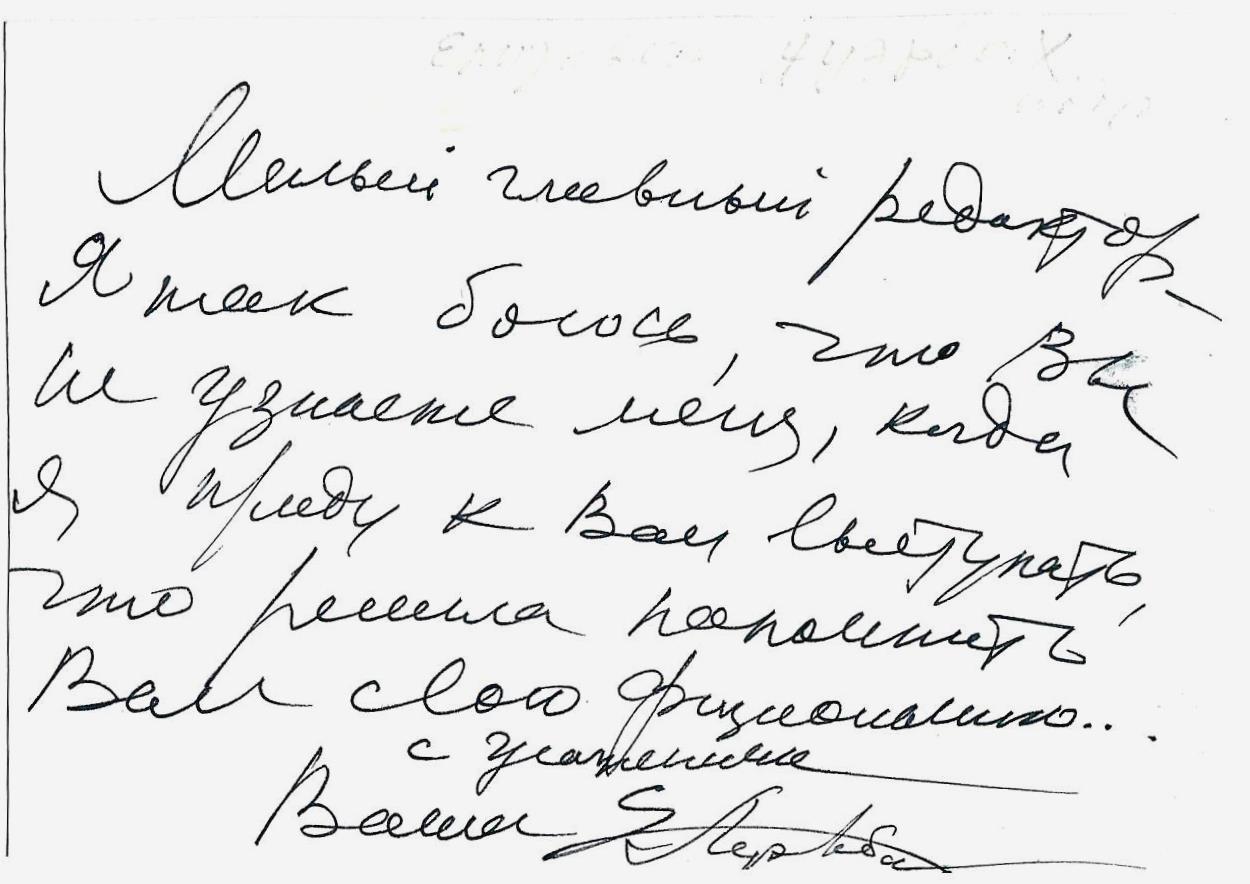 Милый главный редактор –
Я так боюсь, что Вы
не узнаете меня, когда
я приеду к Вам выступать,
что решила напомнить
Вам свою физиономию...
с уважением
Ваша